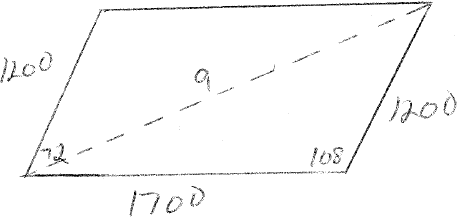 1200
a
1200
72
108
1700